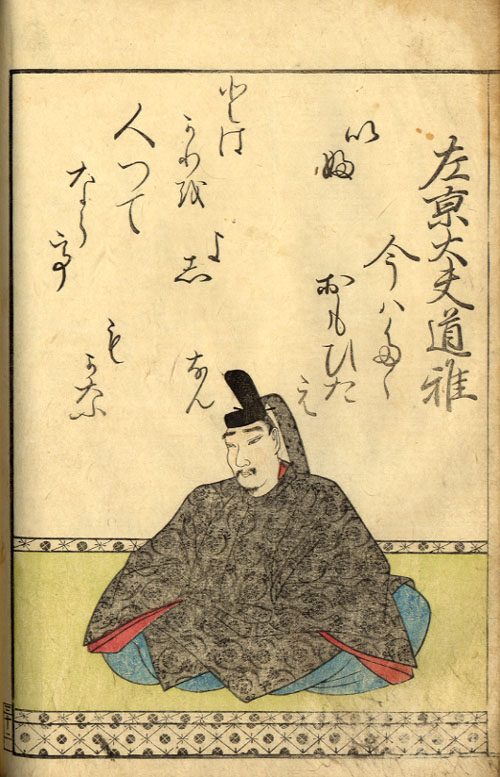 左京大夫道雅
今ハたゝ
おもひた
え
なん
とは
かりを
人つて
ならて
いふ
よし
もかな